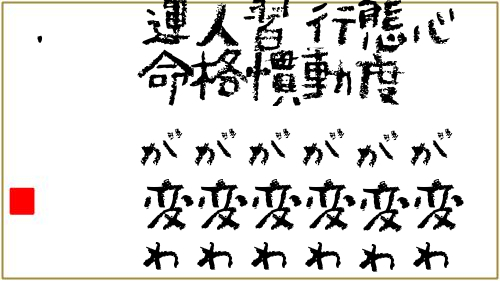 心が変わ
態度が変わ
行動が変わ
習慣が変わ
人格が変わ
運命が変わ